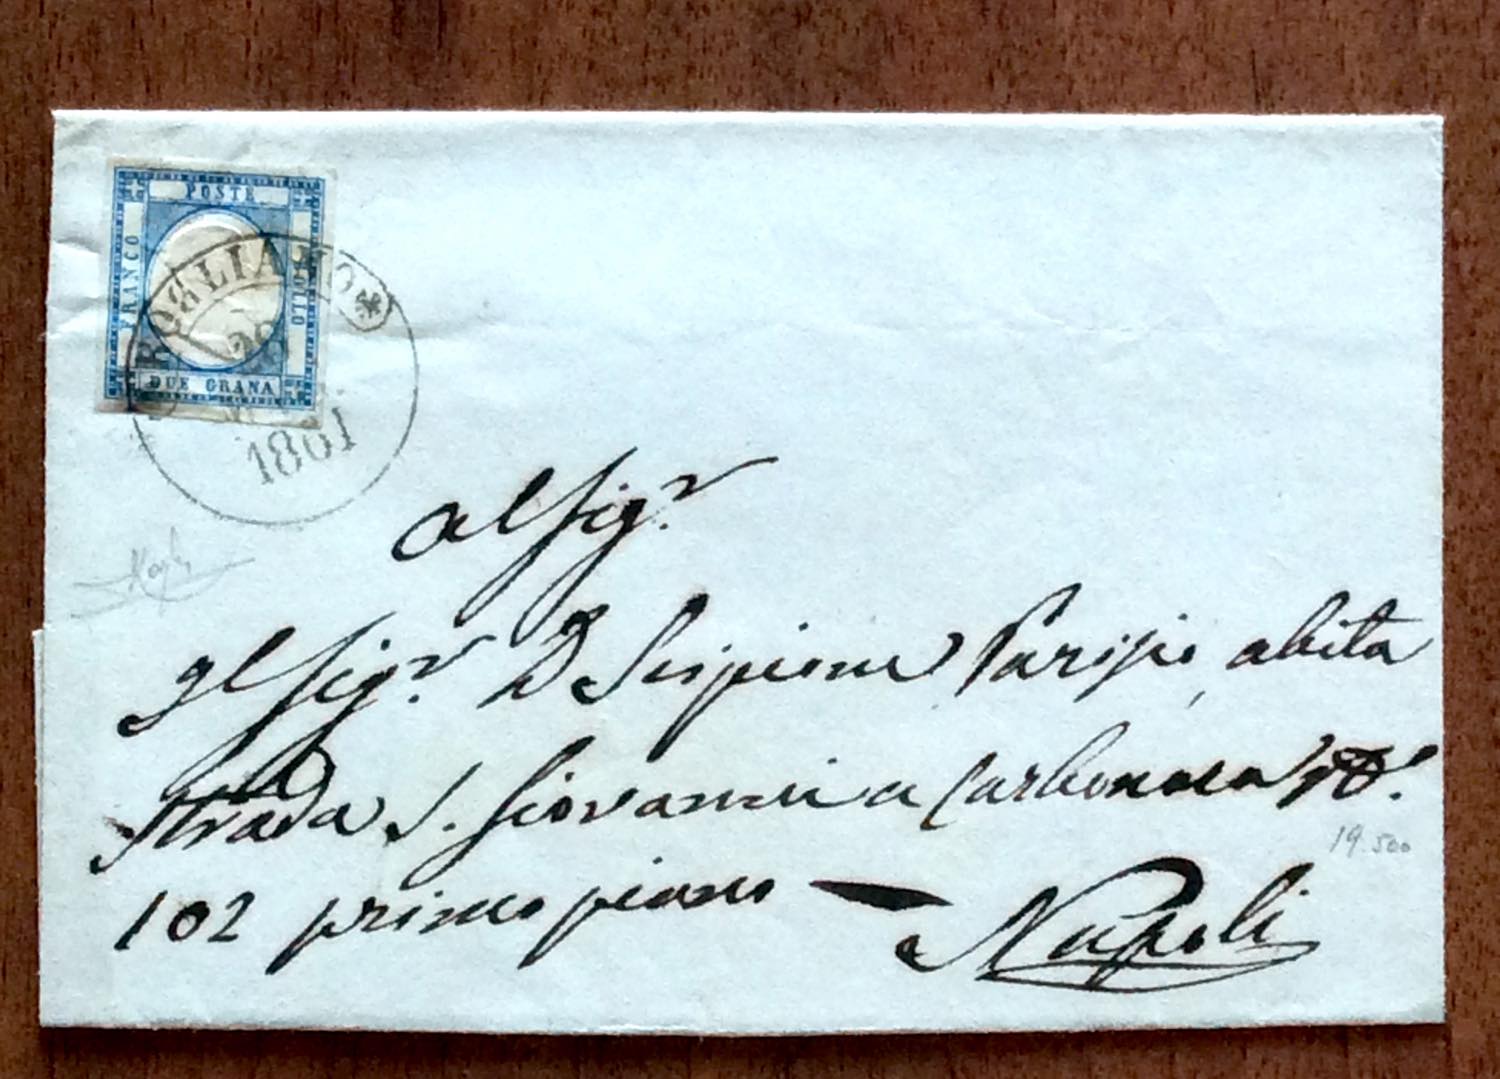 POSTE
FRANCO
BOLLO
DUE GRANA
ROGLIANO *
26
1861
Al Sigr.
Al Sigr. D Scipione Parisio, abita
Strada S. Giovanni a Carbonara
19.500
102 primo piano — Napoli